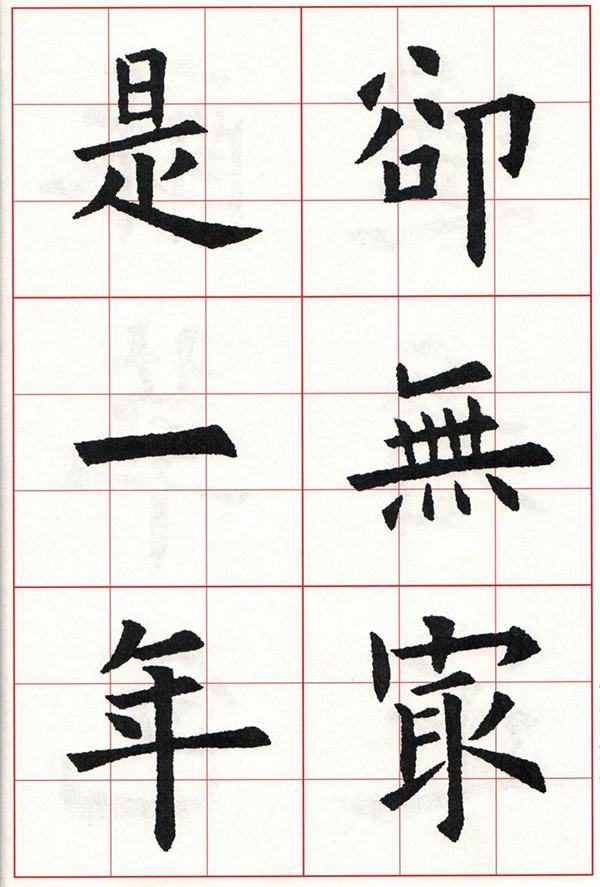 卻無㝡
是一年